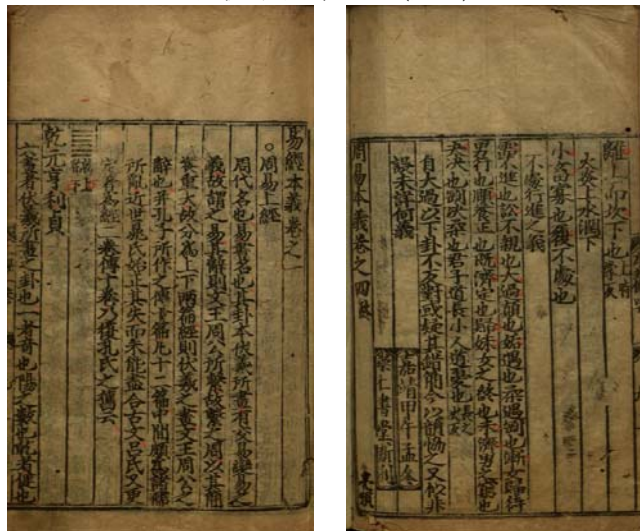 易經本義卷之一
周易上經
周代名也易書名也其卦本伏羲所畫有交易變易之
義故謂之易其辭則文王周公所繫故繫之周以其簡
袠重大故分為上下兩篇經則伏羲之畫文王周公之
辭也并孔子所作之傳十篇凡十二篇中間頗為諸儒
所亂近世晁氏始正其失而未能盡合古文呂氏又更
定著為經二卷傳十卷乃復孔氏之舊云
乾上
乾下
乾元亨利貞
六畫者伏羲所畫之卦也一者奇也陽之數也乾者健也
離上而坎下也
火炎上水潤下
小畜寡也履不處也
不處行進之義
需不進也訟不親也大過顛也姤遇也柔遇剛也漸女歸待
男行也頤養正也既濟定也歸妹女之終也未濟男之窮也
夬決也剛決柔也君子道長小人道憂也
自大過以下卦不反對或疑其錯簡今以韻協之又似非
誤未詳何義
周易本義卷之四終
嘉靖甲午孟冬